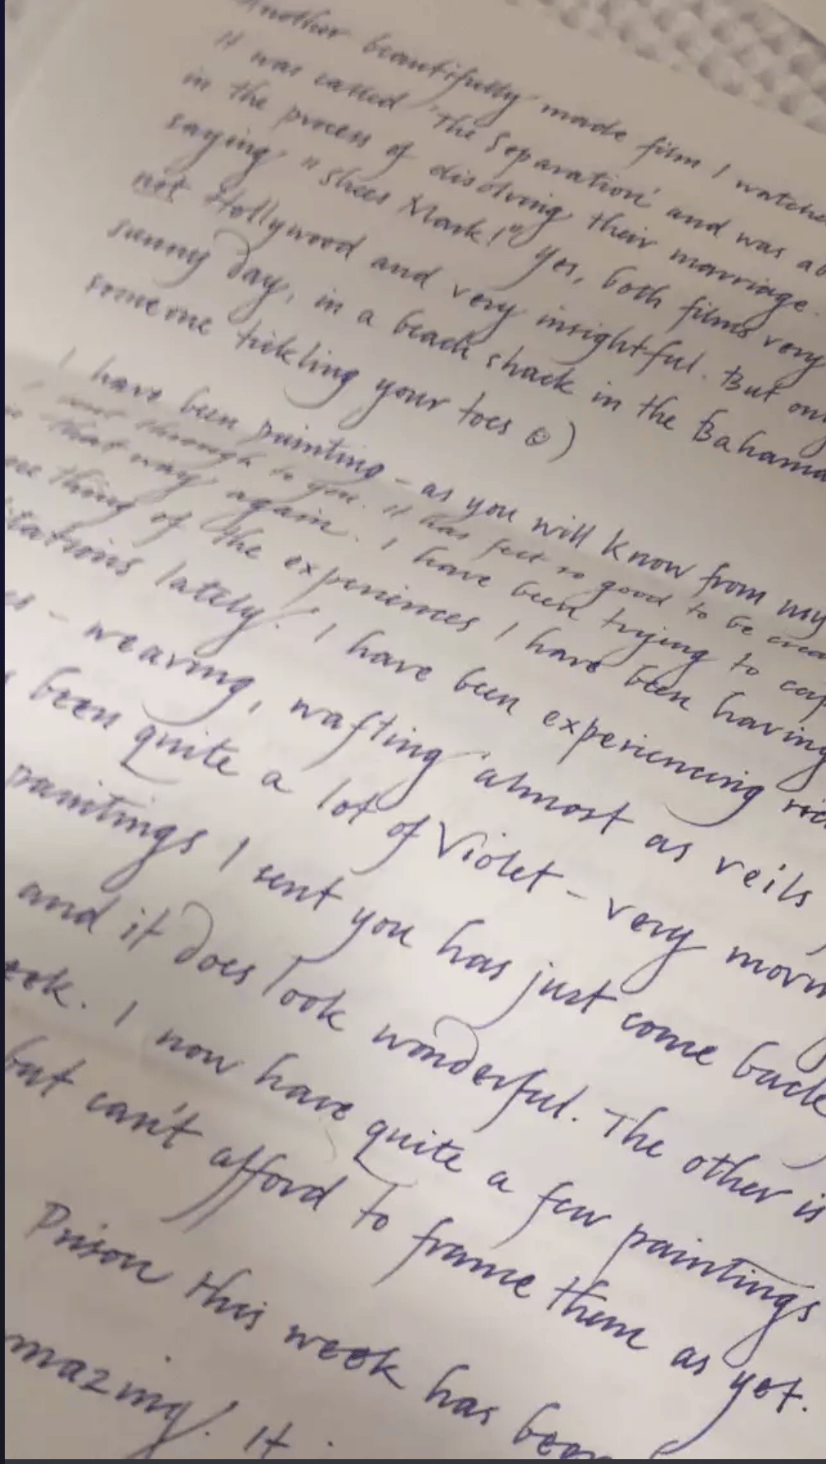 Another beautifully made film I watche
It was called 'The Separation' and was ab
in the process of disolving their marriage.
saying "Shees Mark!" Yes, both films very
not Hollywood and very insightful. But on
sunny day, in a beach shack in the Bahama
someone tickling your toes ☺)
I have been painting - as you will know from my
through to you. It has felt so good to be crea
that way again. I have been trying to cap
thing of the experiences I have been having
itations lately. I have been experiencing ric
es - weaving, wafting almost as veils
been quite a lot of Violet - very morn
paintings I sent you has just come back
and it does look wonderful. The other is
eek. I now have quite a few paintings
but can't afford to frame them as yet.
Prison this week has been
mazing! It